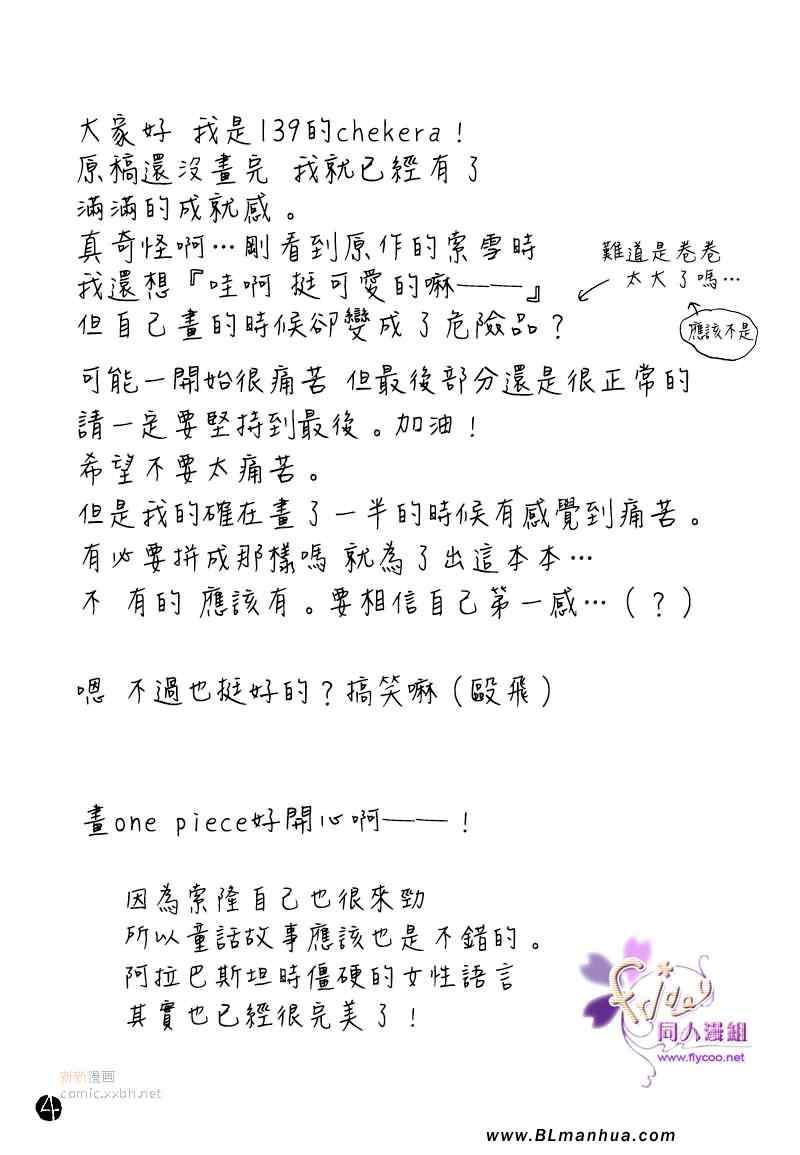 大家好 我是139的chekera！
原稿還沒畫完 我就已經有了
滿滿的成就感。
真奇怪啊…剛看到原作的索雪時
我還想『哇啊 挺可愛的嘛——』
但自己畫的時候卻變成了危險品？
難道是卷卷
太大了嗎…
應該不是
可能一開始很痛苦 但最後部分還是很正常的
請一定要堅持到最後。加油！
希望不要太痛苦。
但是我的確在畫了一半的時候有感覺到痛苦。
有必要拼成那樣嗎 就為了出這本本…
不 有的 應該有。要相信自己第一感…（？）
嗯 不過也挺好的？搞笑嘛（毆飛）
畫one piece好開心啊——！
因為索隆自己也很來勁
所以童話故事應該也是不錯的。
阿拉巴斯坦時僵硬的女性語言
其實也已經很完美了！
Friday
同人漫組
www.flycoo.net
新新漫画
comic.xxbh.net
4
www.BLmanhua.com